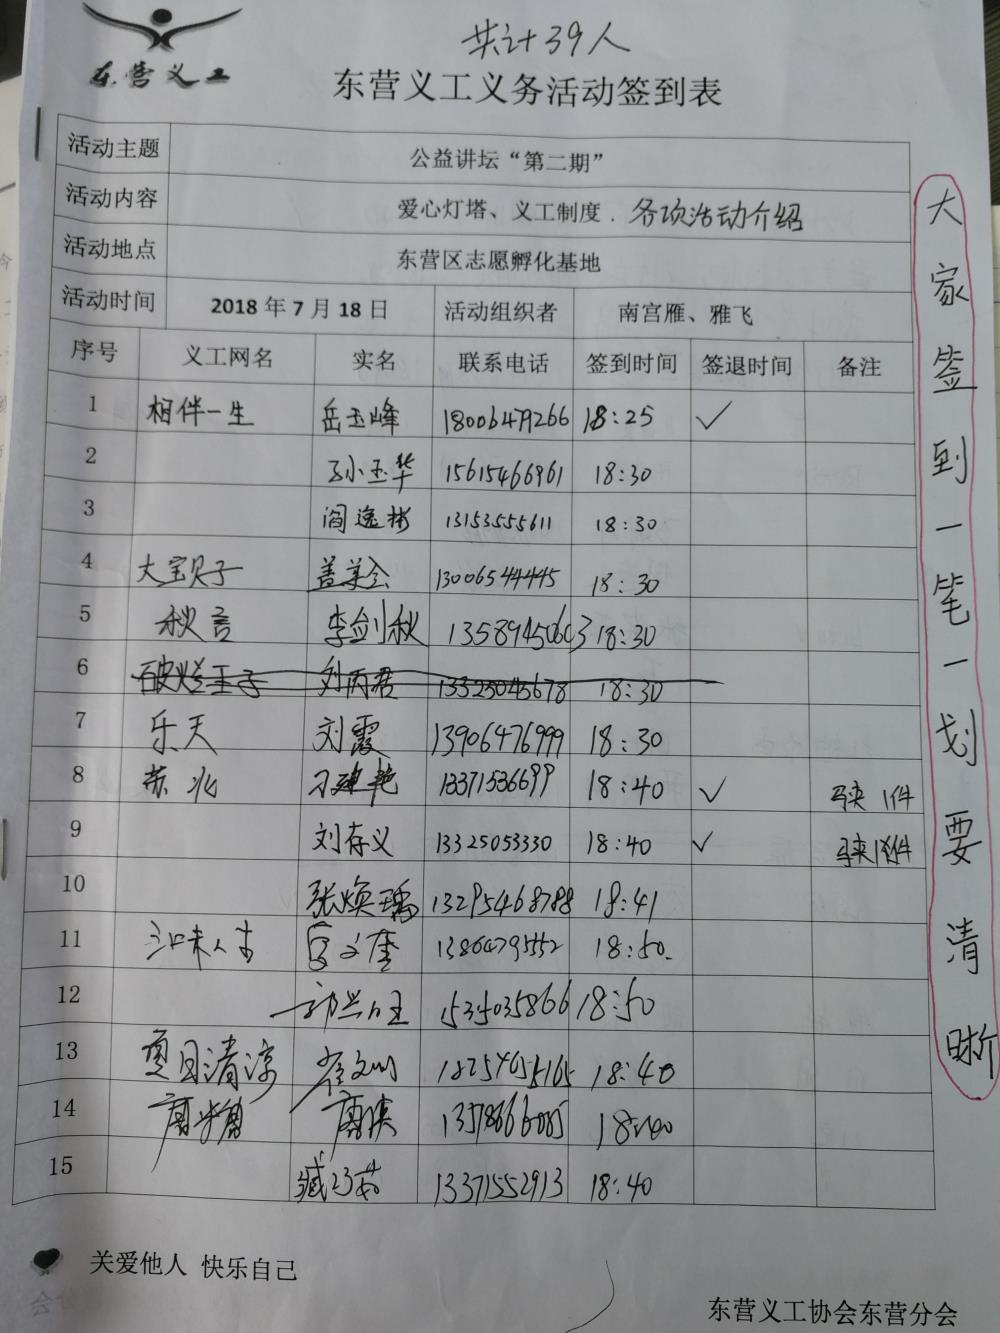 共计39人
东营义工
东营义工义务活动签到表
活动主题 公益讲坛“第二期”
活动内容 爱心灯塔、义工制度. 各项活动介绍
活动地点 东营区志愿孵化基地
活动时间 2018 年 7 月 18 日 活动组织者 南宫雁、雅飞
序号 义工网名 实名 联系电话 签到时间 签退时间 备注
1 相伴一生 岳玉峰 18006479266 18:25 ✓
2 孙玉华 15615466961 18:30
3 阎逸彬 13153555611 18:30
4 大宝贝子 盖美会 13006544445 18:30
5 秋言 李剑秋 13589450603 18:30
6 破烂王子 刘丙君 13325045678 18:30
7 乐天 刘霞 13906476999 18:30
8 苏北 刁建艳 13371536699 18:40 ✓ 马夹 1件
9 刘存义 13325053330 18:40 ✓ 马夹1件
10 张焕瑀 13295468788 18:41
11 18:50.
12 1535035866 18:50
13 夏日清凉 崔 18:40
14 唐 18:40
15 臧巧茹 13371552913 18:40
大家签到一笔一划要清晰
关爱他人 快乐自己
东营义工协会东营分会